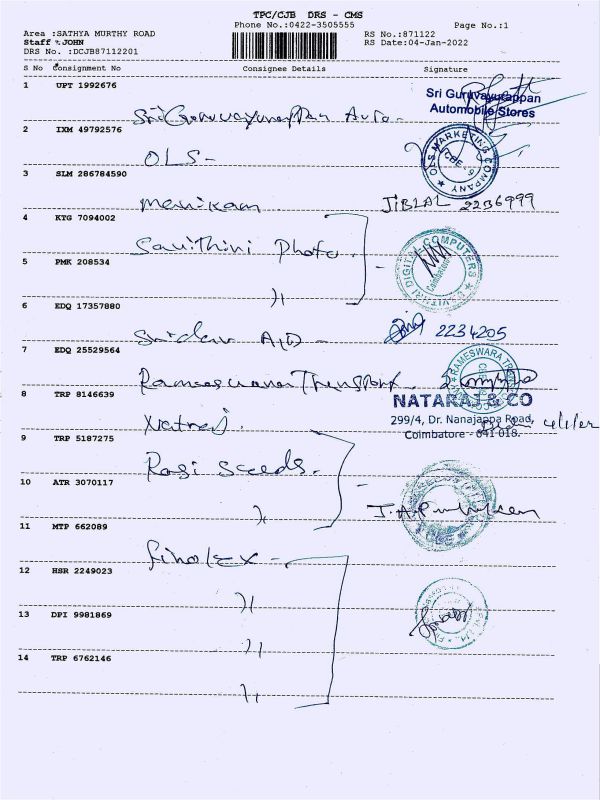 TPC/CJB DRS - CMS
Phone No.:0422-3505555 Page No.:1
Area :SATHYA MURTHY ROAD RS No.:871122
Staff :JOHN RS Date:04-Jan-2022
DRS No. :DCJB87112201
S No Consignment No Consignee Details Signature
1 UPT 1992676
Sri Guruvayurappan Auto - Sri Guruvayurappan Automobile Stores
2 IXM 49792576
OLS - OLS MARKETING COMPANY
3 SLM 286784590
Manikam JIBLAL 2236999
4 KTG 7094002
Savithiri Photo. SAVITHRI DIGITAL COMPUTERS Coimbatore
5 PMK 208534
〃
6 EDQ 17357880
Sridevi A/D - 2234205
7 EDQ 25529564
Rameswara Transport. RAMESWARA
8 TRP 8146639
Natraj. NATARAJ & CO
299/4, Dr. Nanajappa Road,
Coimbatore - 641 018.
9 TRP 5187275
Rasi seeds.
10 ATR 3070117
〃
11 MTP 662089
finolex -
12 HSR 2249023
〃
13 DPI 9981869
〃
14 TRP 6762146
〃